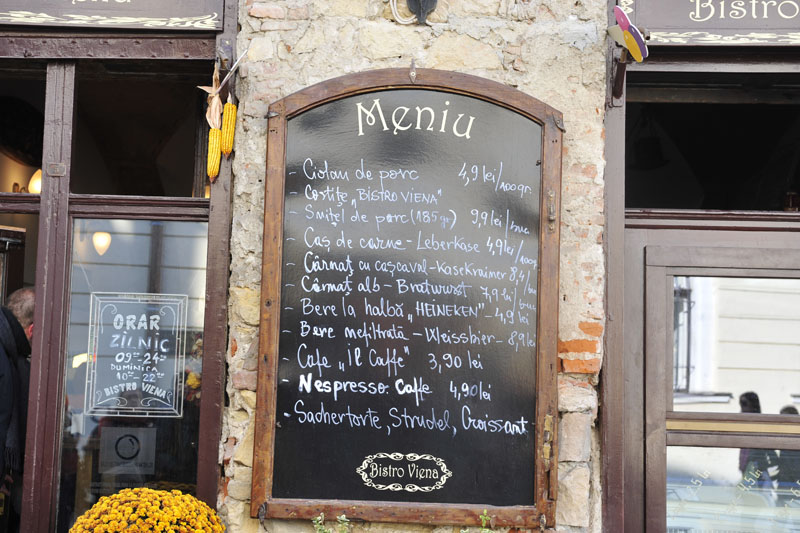 Bistro
Meniu
- Ciolan de porc 4,9 lei/100gr.
- Costițe „BISTRO VIENA"
- Șnițel de porc (185gr) 9,9 lei/buc
- Caș de carne - Leberkäse 4,9 lei/100gr.
- Cârnaț cu cașcaval - Kasekrainer 8,4/buc
- Cârnaț alb - Bratwurst 7,9 lei/buc
- Bere la halbă „HEINEKEN" - 4,9 lei
- Bere nefiltrată - Weissbier - 8,9 lei
- Cafe „Il Caffe" 3,90 lei
- Nespresso Caffe 4,90 lei
- Sachertorte, Strudel, Croissant
Bistro Viena
ORAR
ZILNIC
09⁰⁰-24⁰⁰
DUMINICA
10⁰⁰-22⁰⁰
BISTRO VIENA